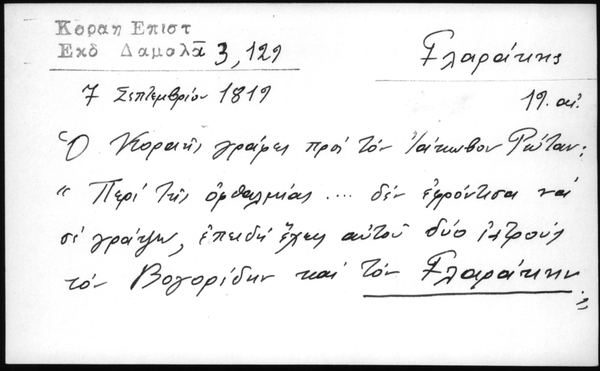 Κοραη Επιστ
Εκδ Δαμαλᾶ 3, 129
Γλαράκης
7 Σεπτεμβρίου 1819
19. αἰ.
Ὁ Κοραῆς γράφει πρὸς τὸν Ἰάκωβον Ρώταν:
"Περὶ τῆς ὀφθαλμίας .... δὲν ἐφρόντισα νά
σέ γράψω, ἐπειδή ἔχεις αὐτοῦ δύο ἰατρούς
τόν Βογορίδην καί τόν Γλαράκην"